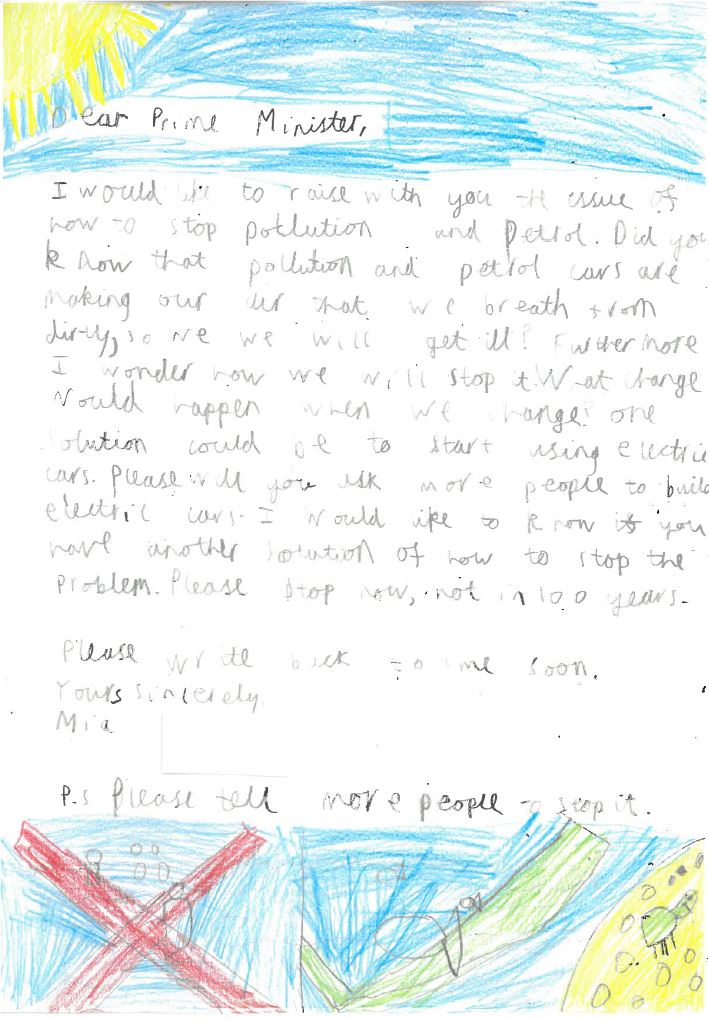 Dear Prime Minister,
I would like to raise with you the issue of
how to stop pollution and Petrol. Did you
know that pollution and petrol cars are
making our air that we breath from
dirty, so we we will get ill? Furthermore
I wonder how we will stop it. What change
Would happen when we change? one
Solution could be to start using electric
cars. Please will you ask more people to build
electric cars. I would like to know if you
have another solution of how to stop the
Problem. Please stop now, not in 100 years.
Please write back to me soon.
Yours sincerely,
Mia
P.s Please tell more people to stop it.